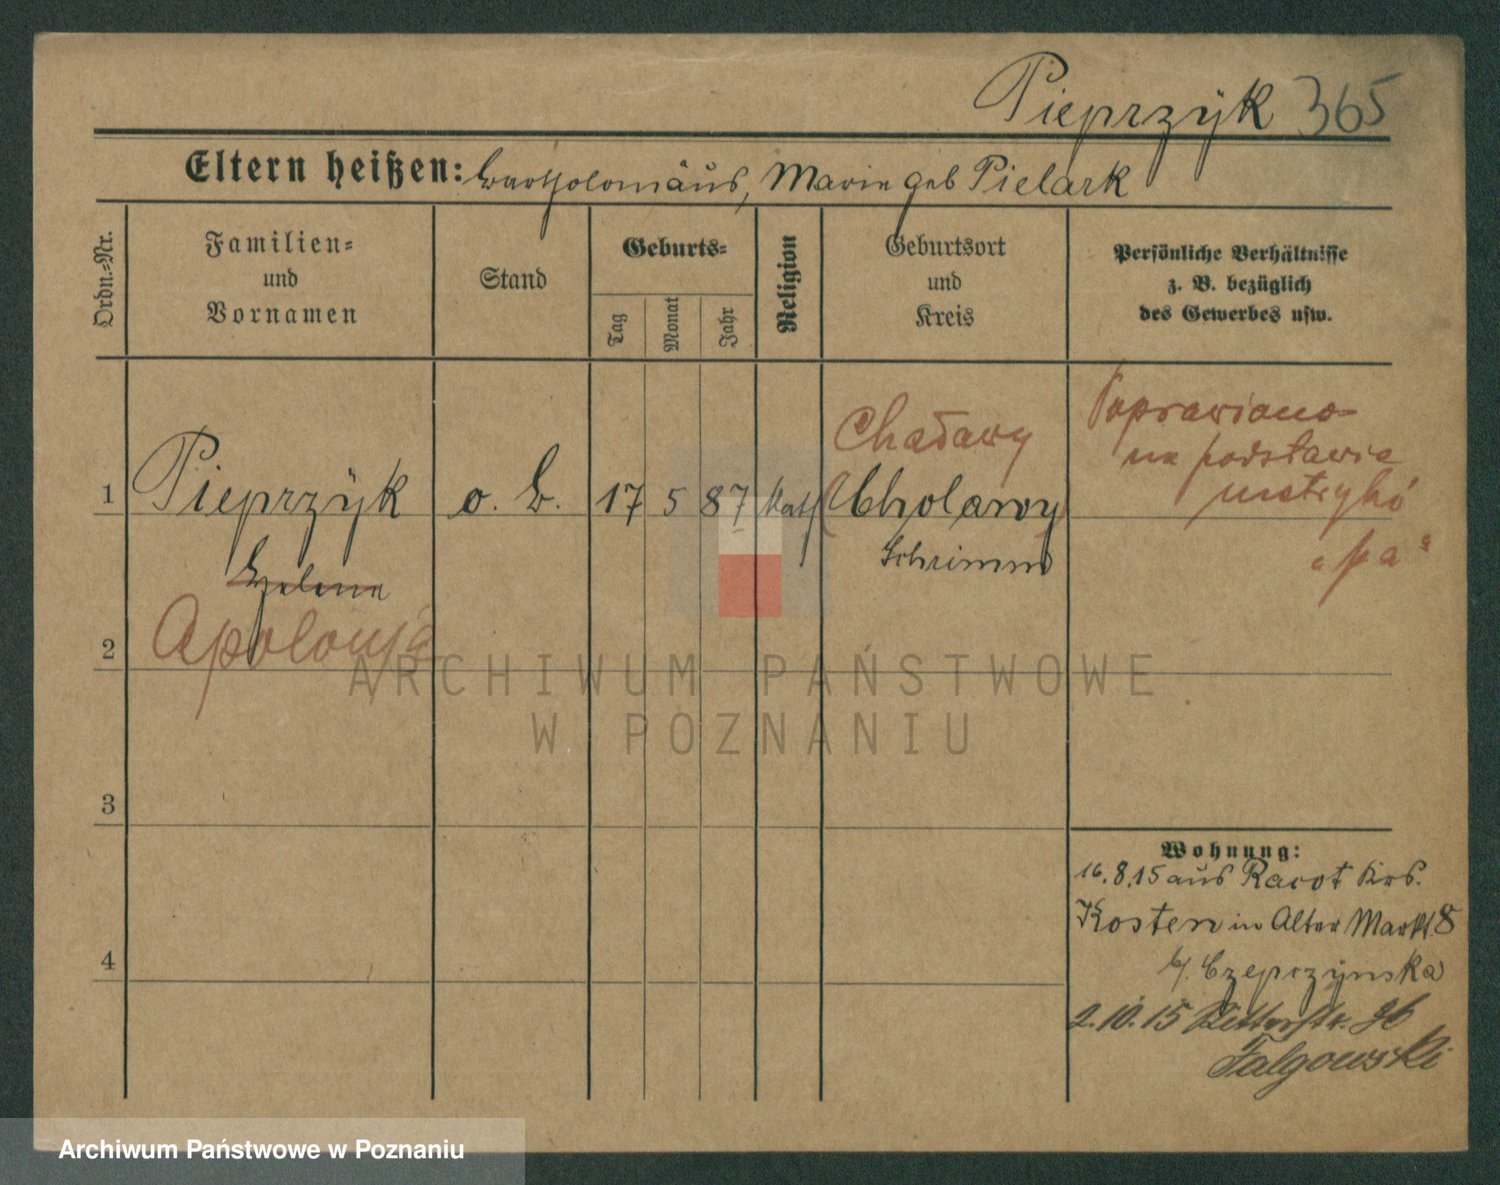 Pieprzÿk 365
Eltern heißen: Bartholomäus, Marie geb Pielark
Ordn.=Nr.
Familien=
und
Vornamen
Stand
Geburts=
Tag
Monat
Jahr
Religion
Geburtsort
und
Kreis
Persönliche Verhältnisse
z. B. bezüglich
des Gewerbes usw.
1 Pieprzÿk o. B. 17 5 87 kath Cholawy
Chaławy
Schrimm
Poprawiono
na podstawie
metryki
"
Helene
2 Apolonja
3
4
Wohnung:
16.8.15 aus Racot Krs.
Kosten in Alter Markt 8
b/. Czeprzÿnska
2.10.15 Ritterstr. 36
Falgowski
ARCHIWUM PAŃSTWOWE
W POZNANIU
Archiwum Państwowe w Poznaniu